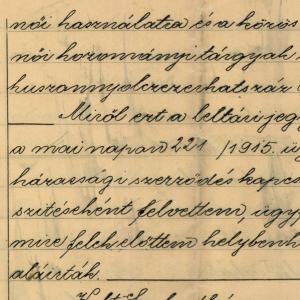 női használatra és a közös
női hozományi tárgyak
huszonnyolcezerhatszáz
Miről ezt a leltári jeg
a mai napon 221/1915. üg
házassági szerződés kapcs
szítéseként felvettem, ügy
mire felek előttem helybenh
aláírták.